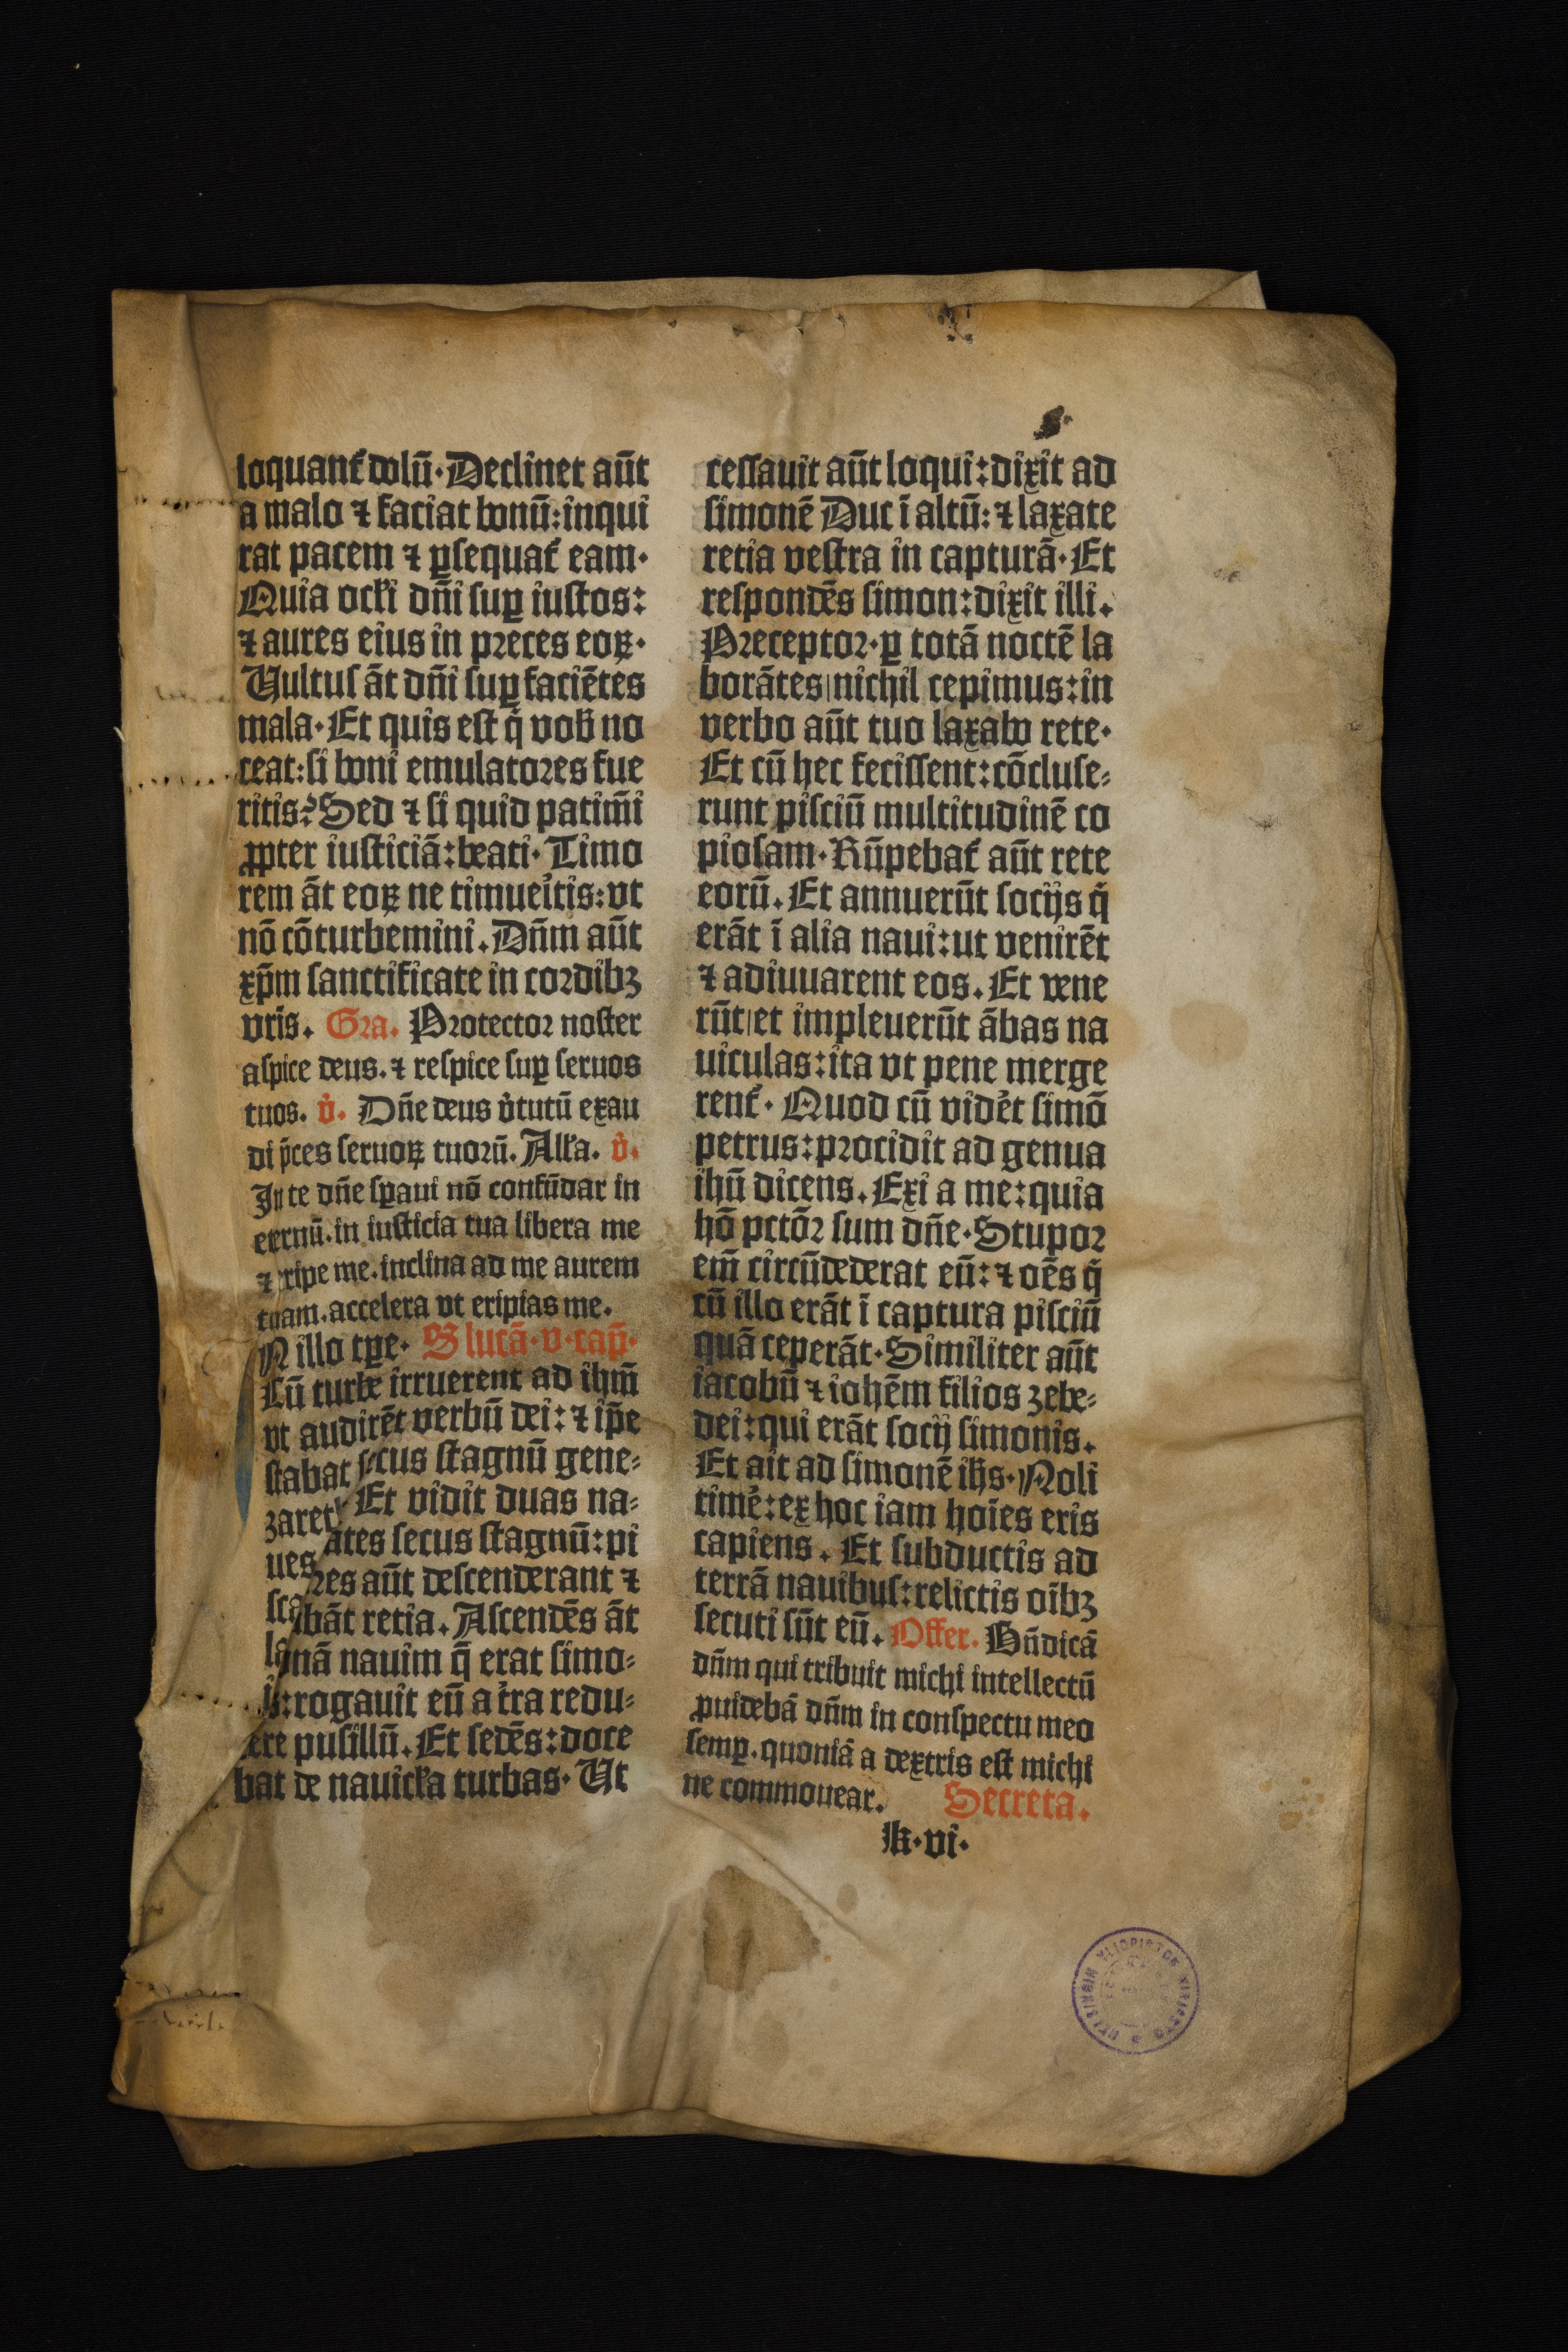 loquant᷑ dolū. Declinet aūt
a malo ⁊ faciat bonū: inqui
rat pacem ⁊ ꝑsequat᷑ eam.
Quia ocłi dn̄i suꝑ iustos:
⁊ aures eius in preces eoꝝ.
Vultus āt dn̄i suꝑ faciētes
mala. Et quis est q̄ vob̄ no
ceat: si boni emulatores fue
ritis? Sed ⁊ si quid patim̄i
ꝓpter iusticiā: beati. Timo
rem āt eoꝝ ne timueītis: vt
nō cōturbemini. Dn̄m aūt
xp̄m sanctificate in cordibꝫ
vr̄is. Gra. Protector noster
aspice deus. ⁊ respice suꝑ seruos
tuos. v̾. Dn̄e deus v̾tutū exau
di p̄ces seruoꝝ tuorū. Alła. v̾.
In te dn̄e sꝑaui nō confūdar in
eternū. in iusticia tua libera me
⁊ eripe me. inclina ad me aurem
tuam. accelera vt eripias me.
N illo tꝑe. S lucā. v. cap̄.
Cū turbe irruerent ad ihm̄
vt audirēt verbū dei: ⁊ ip̄e
stabat secus stagnū gene⸗
zaret Et vidit duas na⸗
ues ātes secus stagnū: pi
sca res aūt descenderant ⁊
la bāt retia. Ascendēs āt
nā nauim q̄ erat simo⸗
is: rogauit eū a t̾ra redu⸗
ere pusillū. Et sedēs: doce
bat de nauicła turbas. Ut
cessauit aūt loqui: dixit ad
simonē Duc ī altū: ⁊ laxate
retia vestra in capturā. Et
respondēs simon: dixit illi.
Preceptor. ꝑ totā noctē la
borātes| nichil cepimus: in
verbo aūt tuo laxabo rete.
Et cū hec fecissent: cōcluse⸗
runt pisciū multitudinē co
piosam. Rūpebat᷑ aūt rete
eorū. Et annuerūt socijs q̄
erāt ī alia naui: ut venirēt
⁊ adiuuarent eos. Et vene
rūt| et impleuerūt ābas na
uiculas: ita vt pene merge
rent᷑. Quod cū vid̾et simō
petrus: procidit ad genua
ihū dicens. Exi a me: quia
hō pctōr sum dn̄e. Stupor
em̄ circūdederat eū: ⁊ oēs q̄
cū illo erāt ī captura pisciū
quā ceperāt. Similiter aūt
iacobū ⁊ iohēm filios zebe⸗
dei: qui erāt socij simonis.
Et ait ad simonē ihs̄. Noli
tim̾e: ex hoc iam hoīes eris
capiens. Et subductis ad
terrā nauibus: relictis oībꝫ
secuti sūt eū. Offer. Bn̄dicā
dn̄m qui tribuit michi intellectū
ꝓuidebā dn̄m in conspectu meo
semꝑ. quoniā a dextris est michi
ne commouear. Secreta.
k. vi.
HELSINGIN YLIOPISTON KIRJASTO